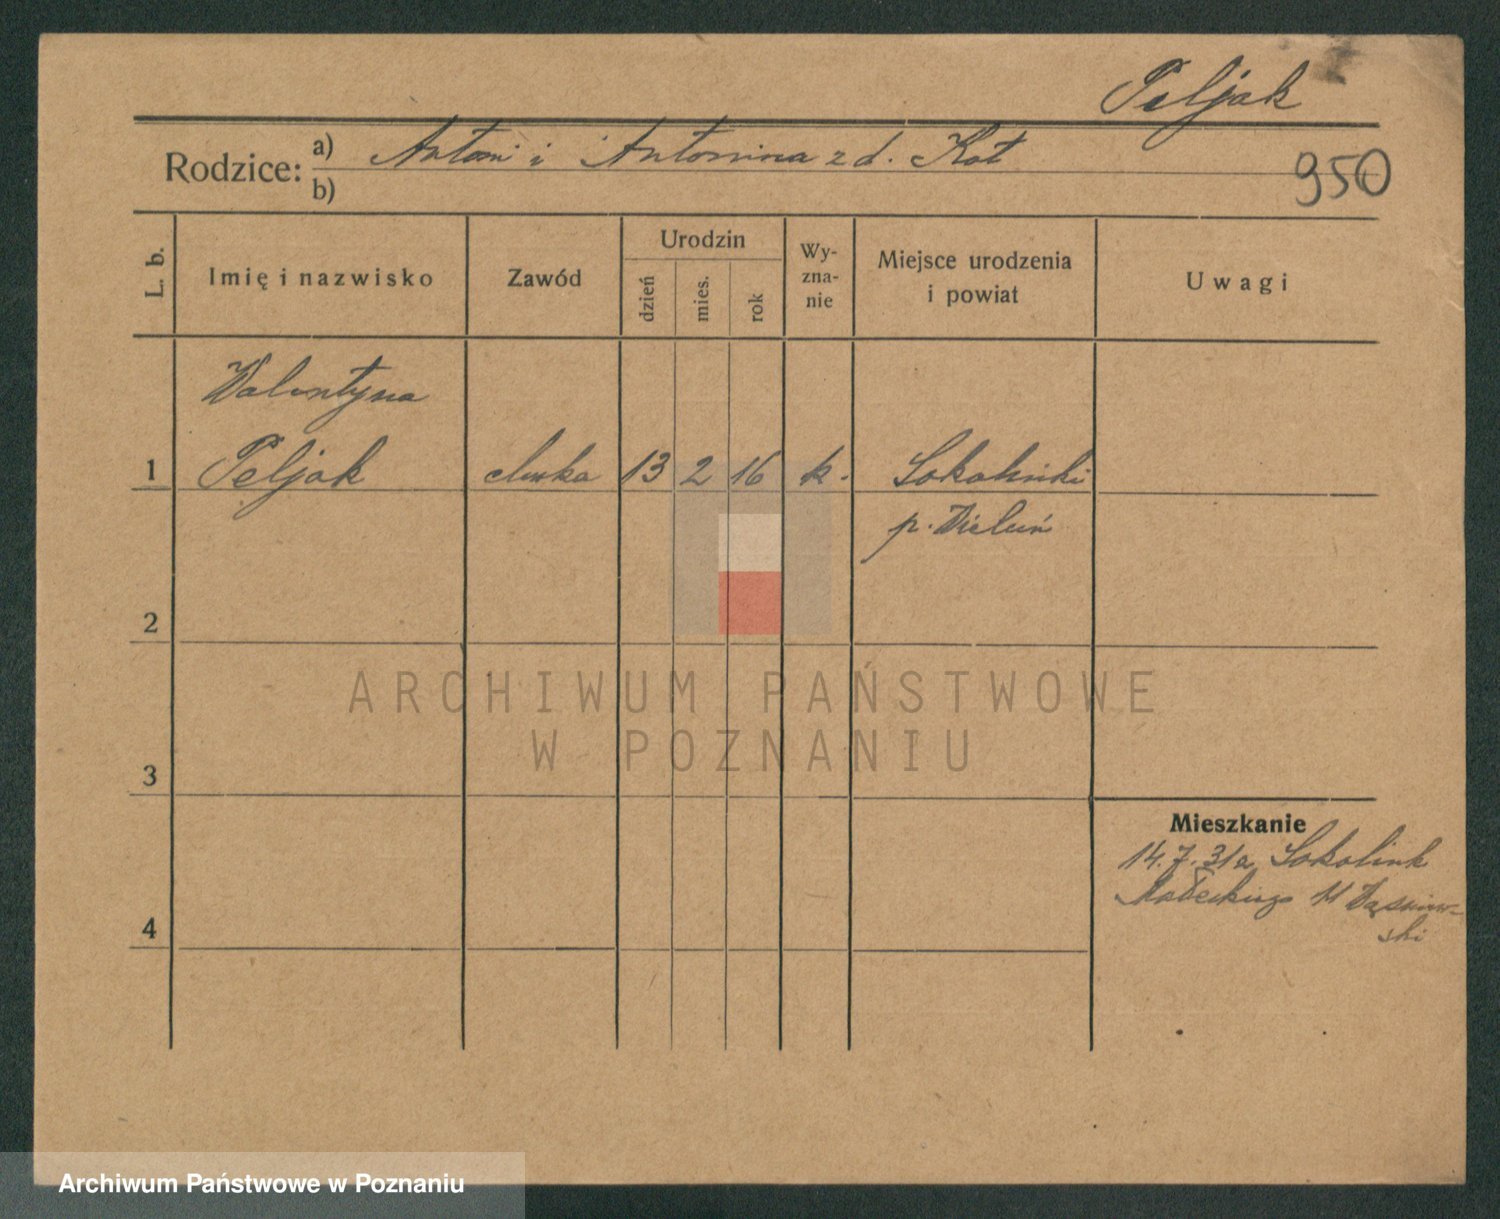 Peljak
Rodzice: a) Antoni i Antonina z d. Kot
b)
950
L. b.
Imię i nazwisko
Zawód
Urodzin
dzień
mies.
rok
Wy-
zna-
nie
Miejsce urodzenia
i powiat
Uwagi
Walentyna
1 Peljak 13 2 16 k.
p. Wieluń
2
ARCHIWUM PAŃSTWOWE
W POZNANIU
3
Mieszkanie
14.7.31 a Sokolink
Małeckiego 11
ski
4
Archiwum Państwowe w Poznaniu